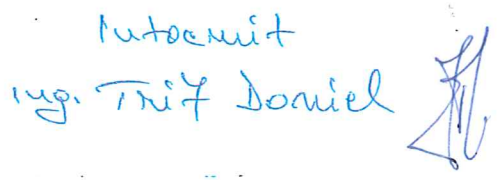 Intocmit
ing. Trif Daniel